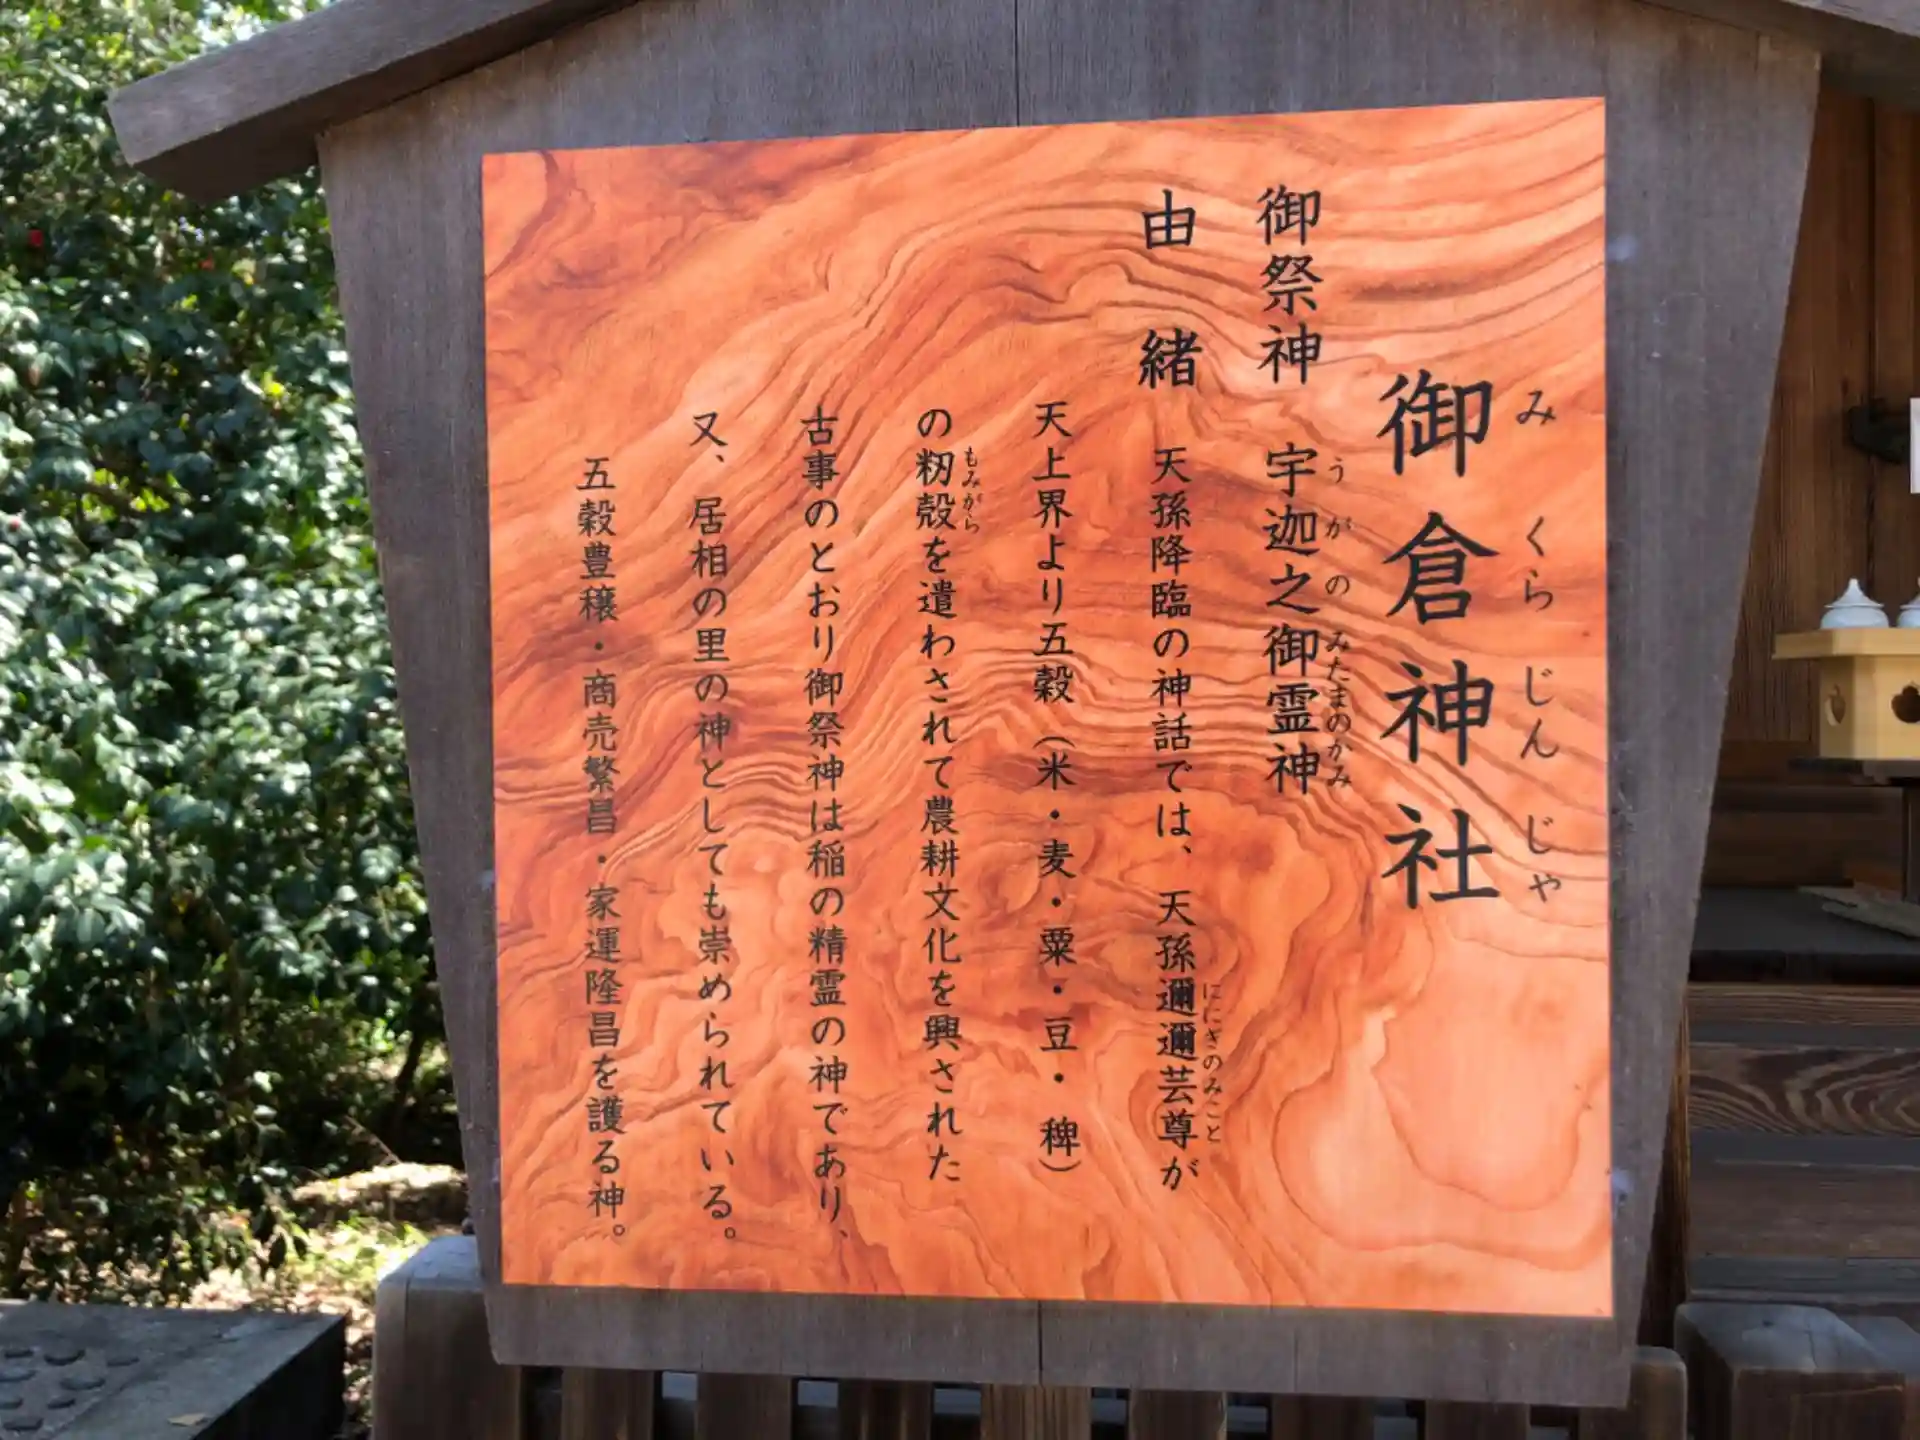 御倉神社
みくらじんじゃ
御祭神 宇迦之御霊神
うがのみたまのかみ
由緒 天孫降臨の神話では、天孫邇邇芸尊が
ににぎのみこと
天上界より五穀（米・麦・粟・豆・稗）
の籾殻を遣わされて農耕文化を興された
もみがら
古事のとおり御祭神は稲の精霊の神であり、
又、居相の里の神としても崇められている。
五穀豊穣・商売繁昌・家運隆昌を護る神。